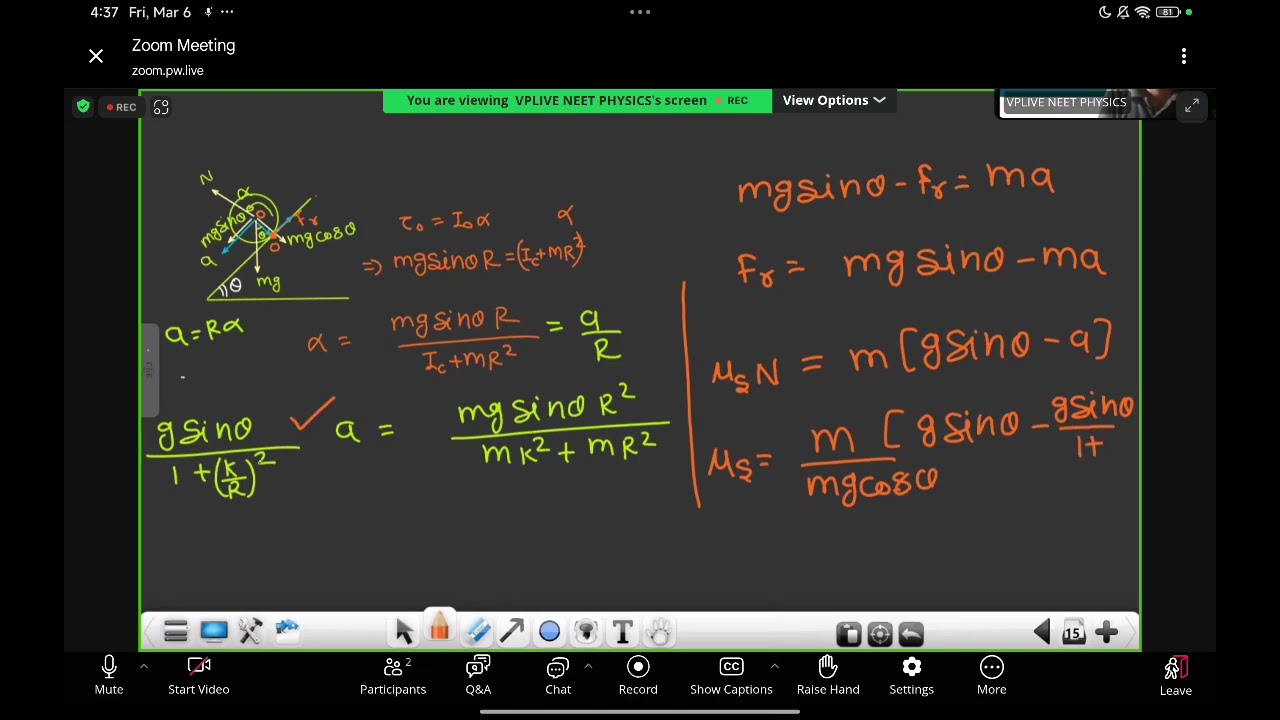 4:37 Fri, Mar 6
81
Zoom Meeting
zoom.pw.live
REC
You are viewing VPLIVE NEET PHYSICS's screen REC
View Options
VPLIVE NEET PHYSICS
N
α
mgsinθ
fr
mgcosθ
a
mg
θ
a = Rα
τ₀ = I₀α α
⇒ mgsinθ R = (Ic + mR²)
α = mgsinθ R / Ic + mR² = a / R
gsinθ / 1 + (K/R)² ✓ a = mgsinθ R² / mK² + mR²
mgsinθ - fr = ma
fr = mgsinθ - ma
μsN = m[gsinθ - a]
μs = m / mgcosθ [gsinθ - gsinθ / 1+
15
Mute
Start Video
Participants 2
Q&A
Chat
Record
CC
Show Captions
Raise Hand
Settings
More
Leave